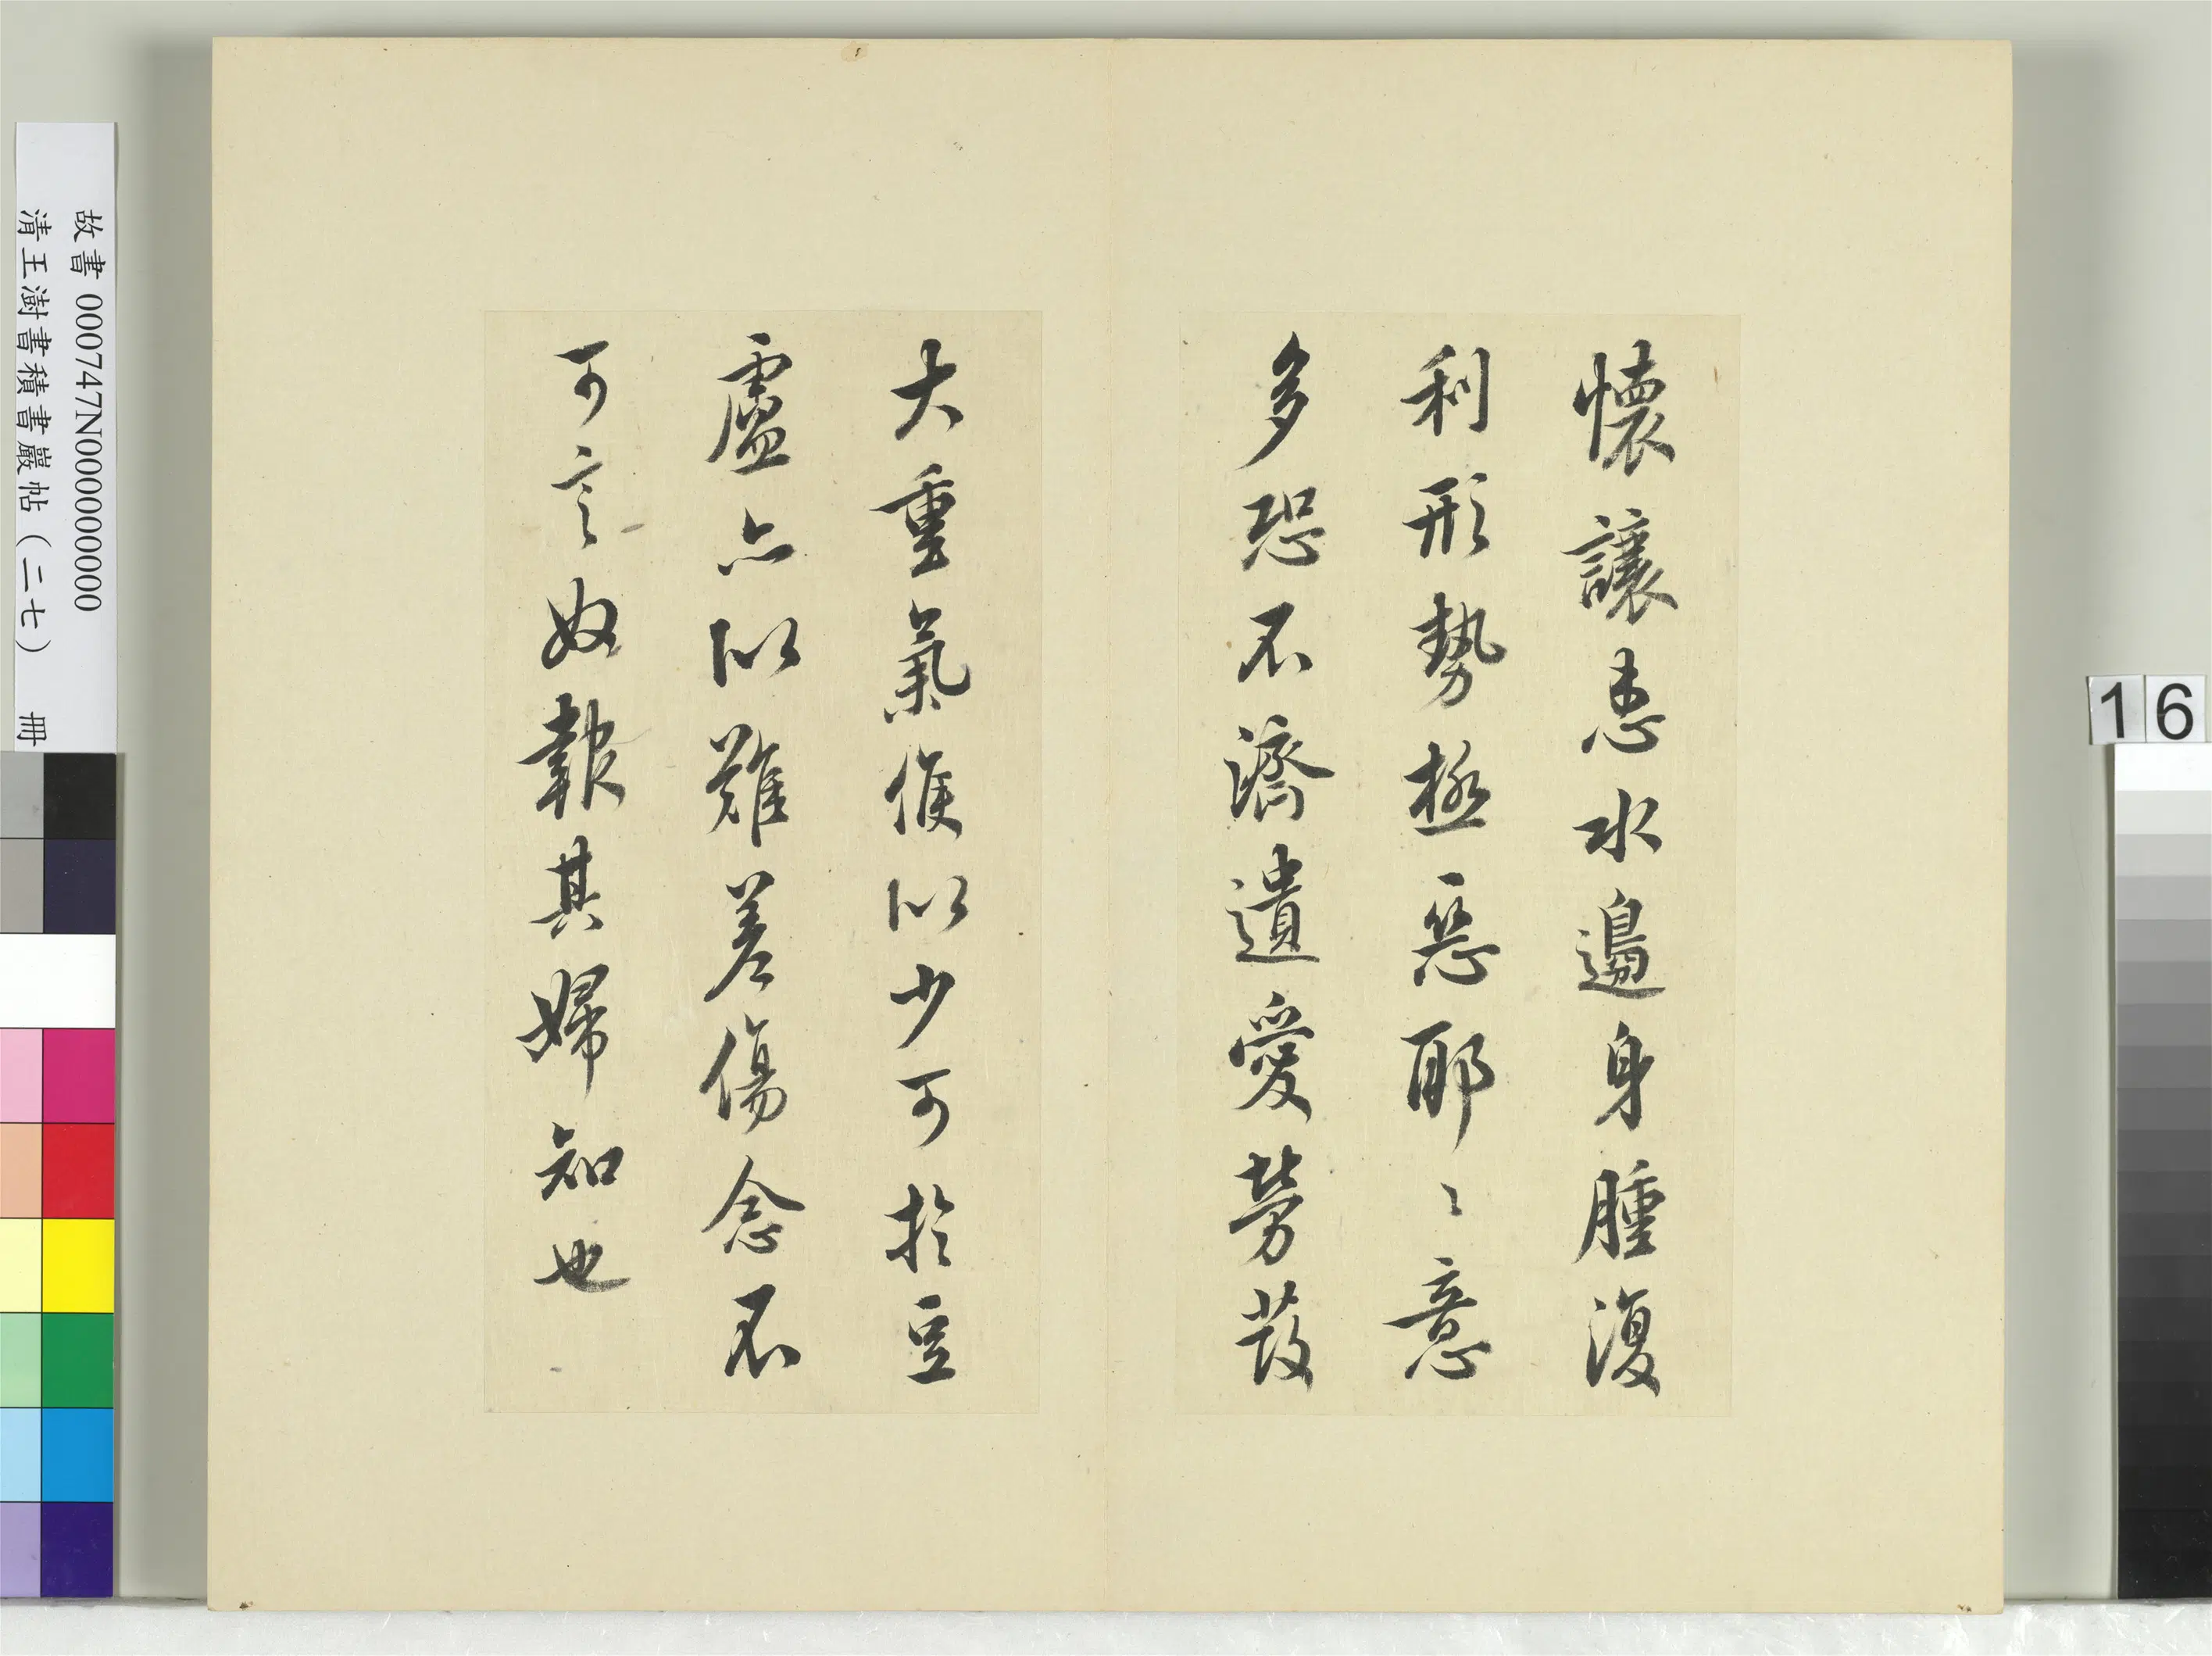 懷讓患水邊身腫復
利形勢極惡耶〻意
多恐不濟遺愛勞發
大重氣候似少可於豆
盧亦似難差傷念不
可言奴報其婦知也
故書 000747N000000000
清王澍書積書巖帖(二七) 冊
16